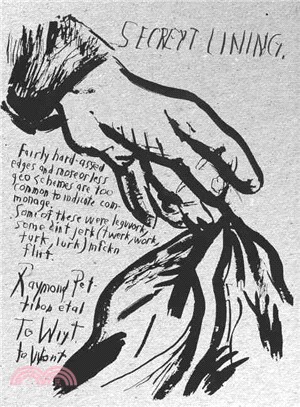 SECREYT LINING.
Fairly hard-assed
edges and more or less
geo schemes are too
common to indicate com-
monage.
Some of these were legwork/
some dint jerk (twerk, work,
turk, lurk) mfckn
flirt.
Raymond Pet-
tibon etal
To Wixt
to Wont
三民網路書店